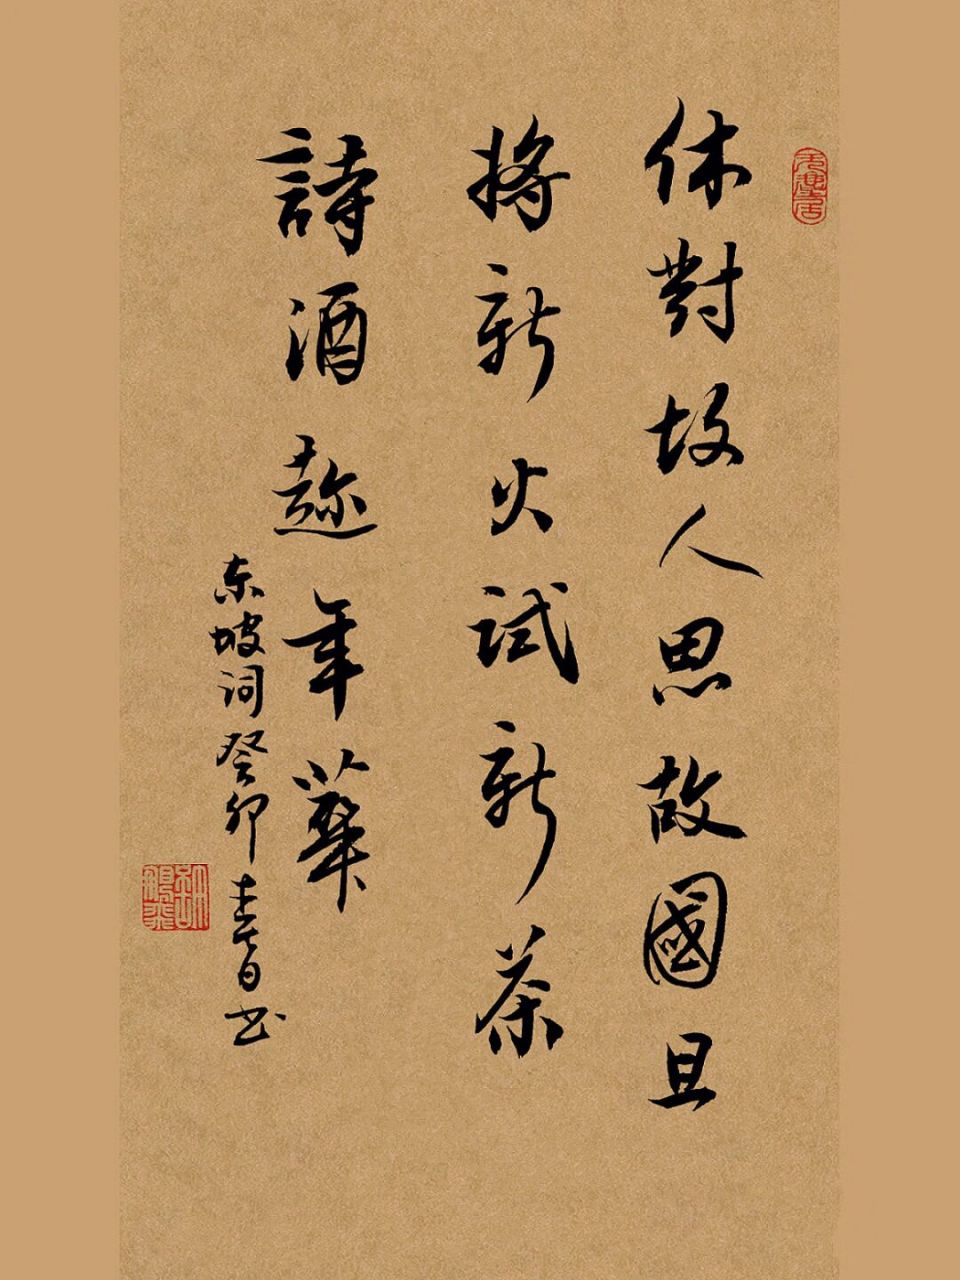 休對故人思故國且
將新火試新茶
詩酒趂年華
东坡词癸卯春日书